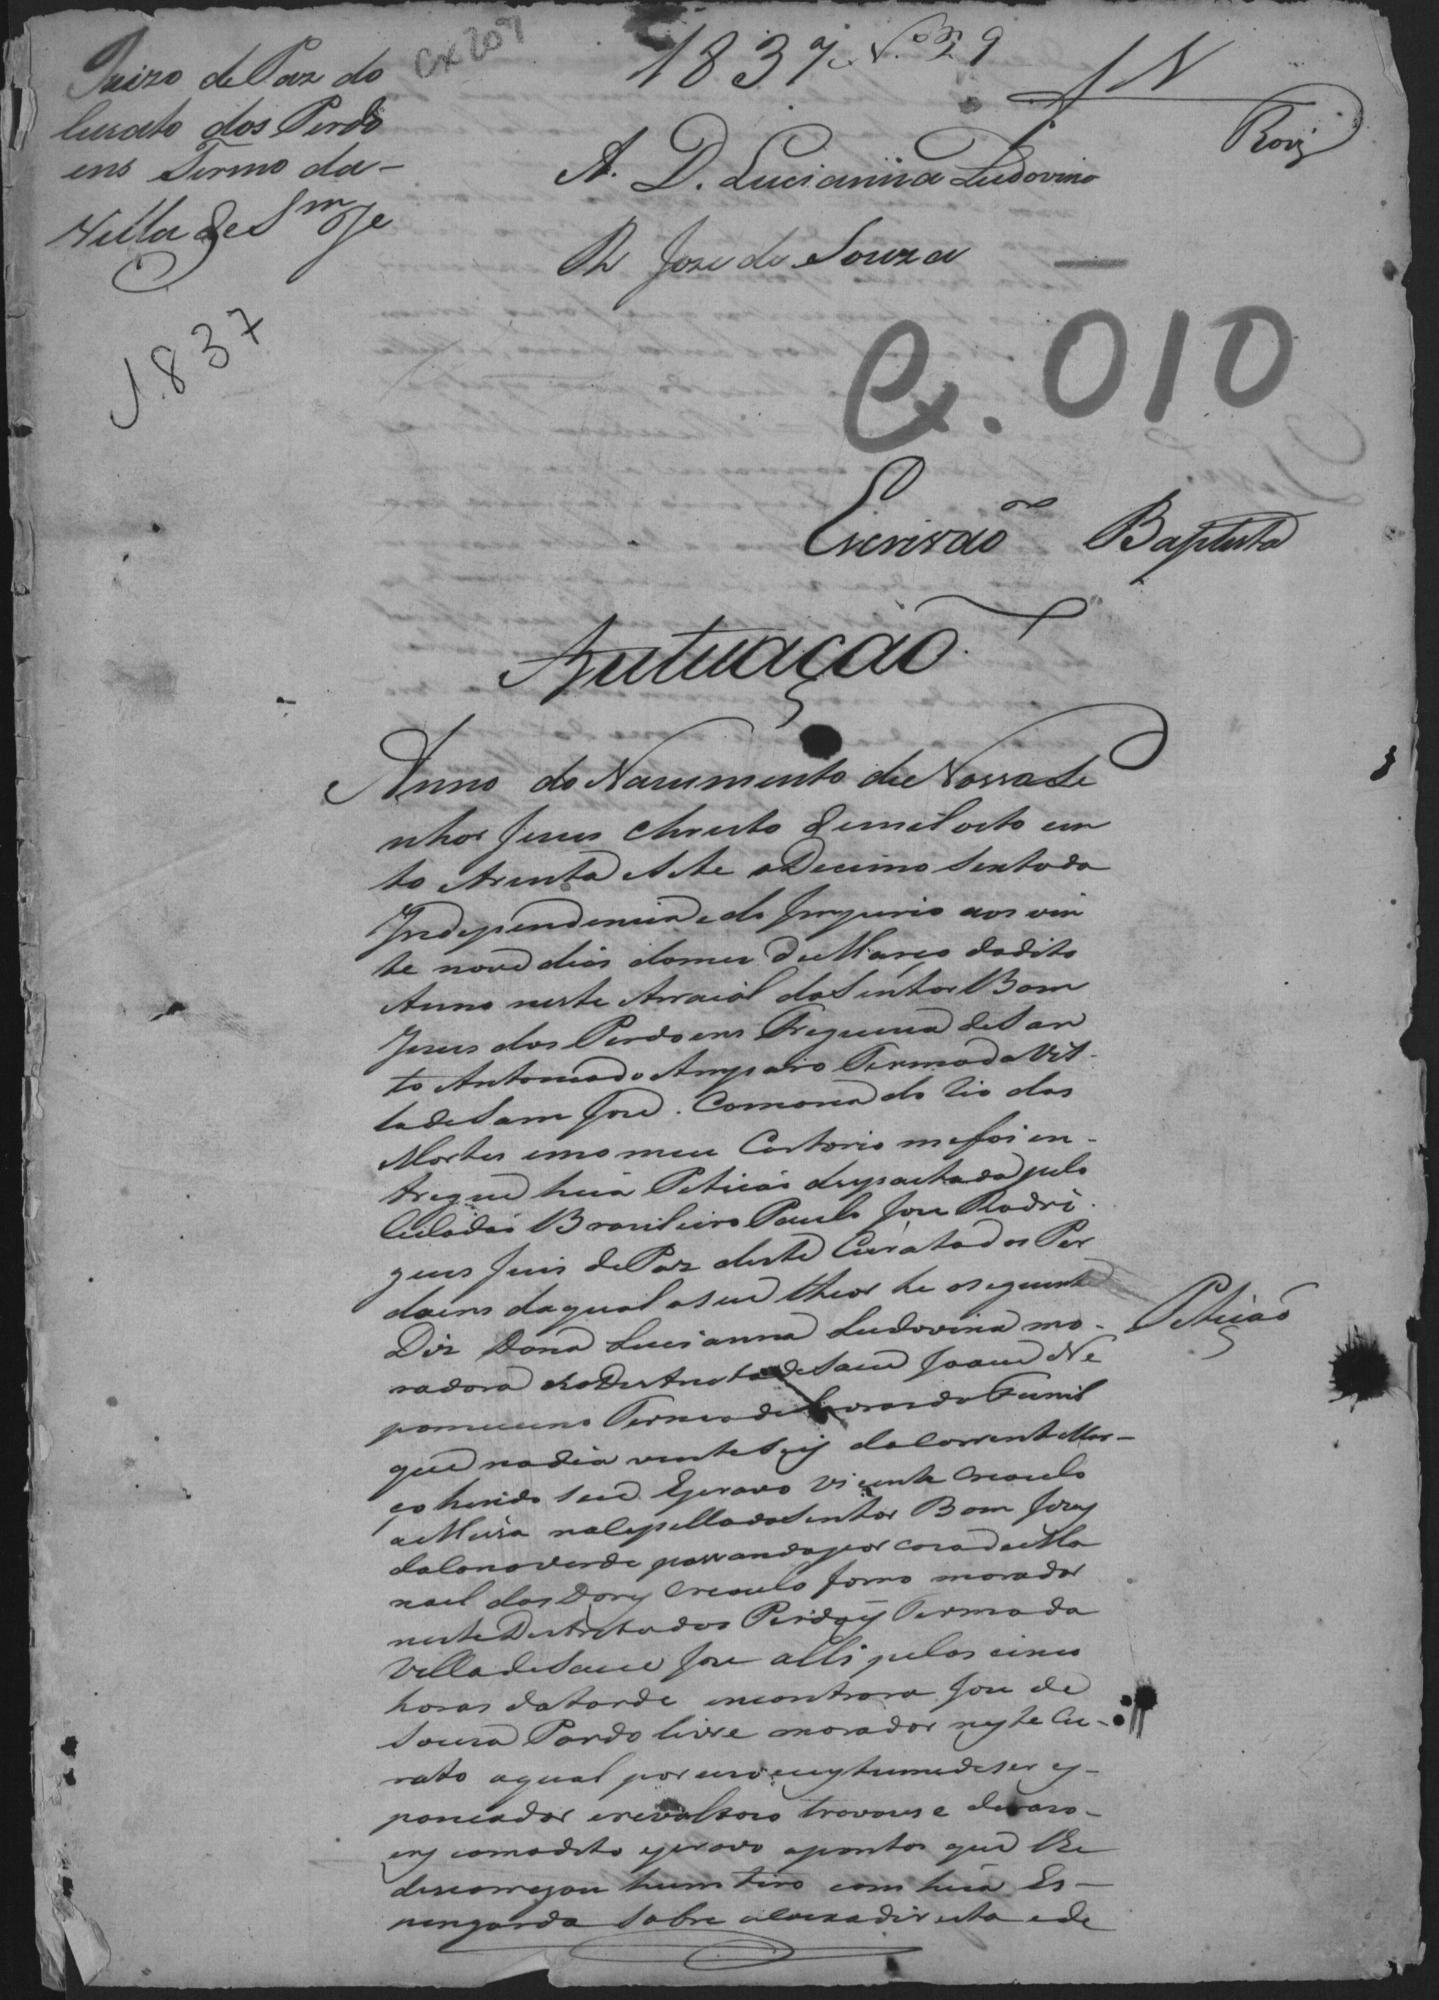 Juizo de Paz do
Curato dos Perdo
ens Termo da
Villa de S.m Je
cx 207
1837 N.
JN
Roiz
A. D. Lucianna Ludovina
R José de Souza
1.837
Cx. 010
Escrivão Baptista
Autuação
Anno do Nascimento de Nosso Se
nhor Jesus Christo de mil oito cen
to trinta e sete e Decimo Sexto da
Independencia e do Imperio aos vin
te nove dias do mes de Março do dito
Anno neste Arraial do Senhor Bom
Jesus dos Perdoens Freguezia de San
to Antonio do Amparo Termo da Vil-
la de Sam José. Comarca do Rio das
Mortes em o meu Cartorio me foi en-
tregue huã Petição despachada pelo
Cidadão Brasileiro Paulo Jose Rodri-
gues Juis de Paz deste Curato dos Per
doens da qual o seu theor he o seguinte
Petição
Dis Dona Lucianna Ludovina mo-
radora no Destricto de Sam Joam Ne
pomuceno Termo de Lavras do Funil
que no dia vinte Seis do Corrente Mar-
ço hindo seu Escravo Vicente Creoulo
a Missa na Capella do Senhor Bom Jesus
da Cana verde passando por casa de Ma
noel das Dores Creoulo forro morador
neste Destricto dos Perdoẽs Termo da
Villa de Sam Jose alli pelas cinco
horas da tarde encontrara Jose de
Souza Pardo livre morador neste Cu-
rato o qual por uso e custume de ser es-
pancador e revoltoso travouse de raso-
ens com o dito escravo a ponto que lhe
descarregou hum tiro com huã Es-
pingarda sobre a coixa direita e de